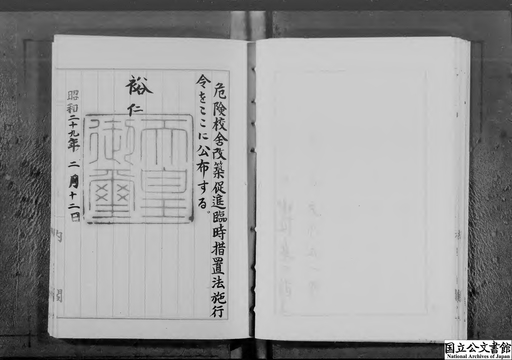 危険校舎改築促進臨時措置法施行
令をここに公布する。
裕仁
天皇
御璽
昭和二十九年二月十二日
内閣
国立公文書館
National Archives of Japan